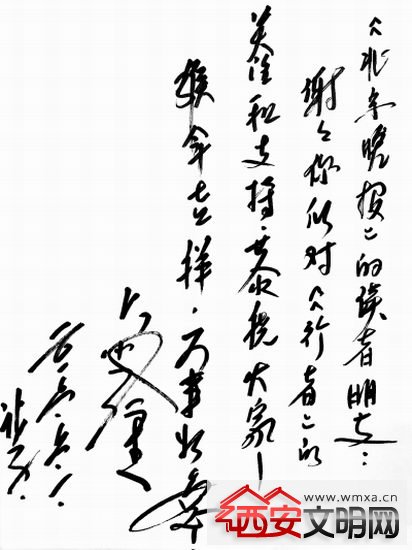 《北京晚报》的读者朋友：
谢谢你们对《行者》的
关注和支持·恭祝大家
猴年吉祥·万事如意
西安文明网
www.wmxa.cn